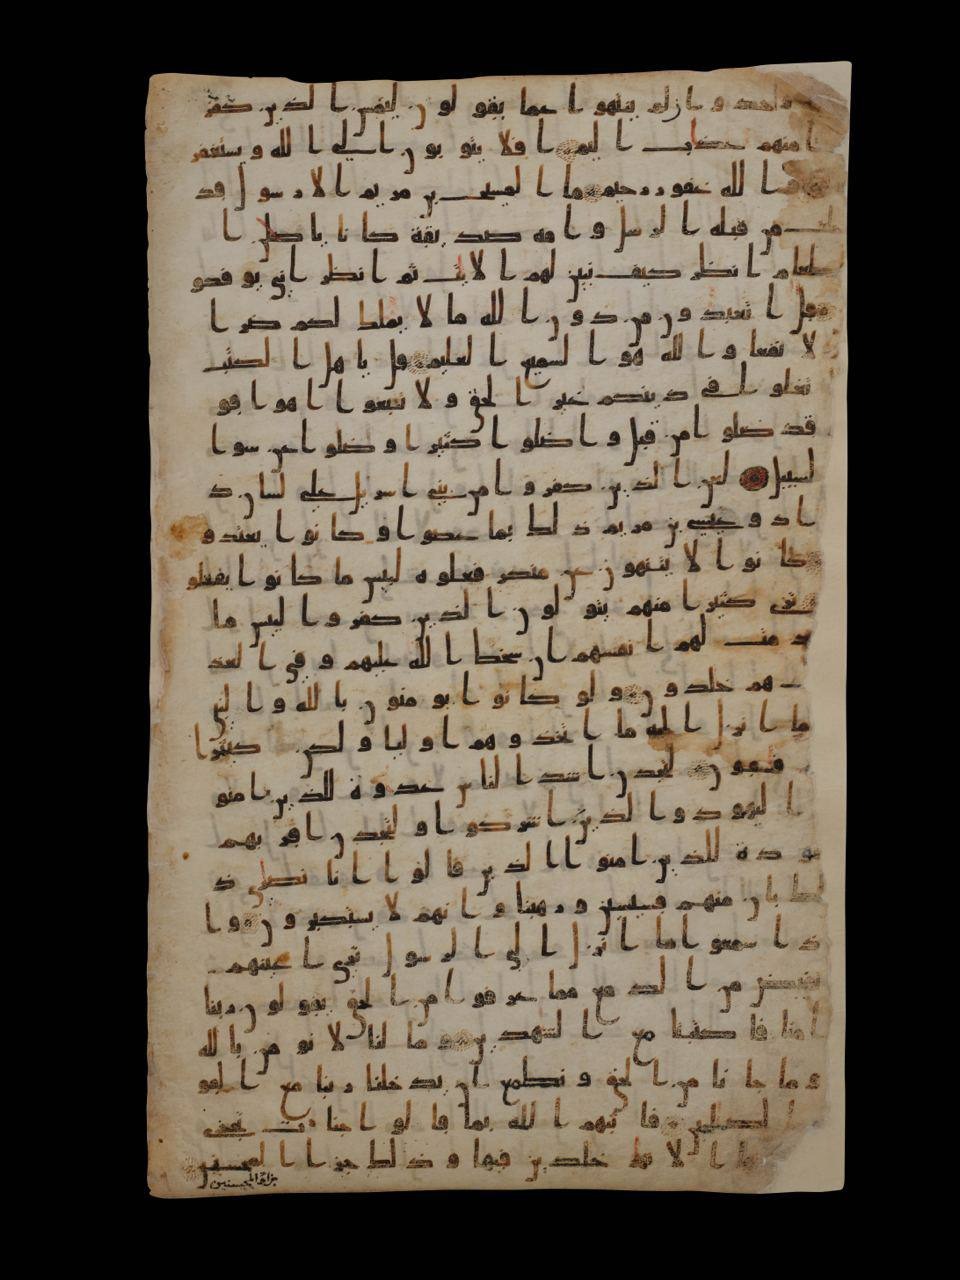 واحد وان لم ينتهوا عما يقولون ليمسن الذين كفر
وا منهم عذاب اليم افلا يتوبون الى الله ويستغفر
ونه والله غفور رحيم ما المسيح بن مريم الا رسول قد
خلت من قبله الرسل وامه صديقة كانا ياكلن ا
لطعام انظر كيف نبين لهم الايت ثم انظر انى يوفكو
ن قل اتعبدون من دون الله ما لا يملك لكم ضرا
و لا نفعا والله هو السميع العليم قل ياهل الكتب
لا تغلوا في دينكم غير الحق ولا تتبعوا اهوا قو
م قد ضلوا من قبل واضلوا كثيرا وضلوا عن سوا
السبيل لعن الذين كفروا من بني اسريل على لسن د
اود وعيسى بن مريم ذلك بما عصوا وكانوا يعتدو
ن كانوا لا يتنهون عن منكر فعلوه لبيس ما كانوا يفعلو
ن ترى كثيرا منهم يتولون الذين كفروا لبيس ما
قدمت لهم انفسهم ان سخط الله عليهم وفي العذ
اب هم خلدون ولو كانوا يومنون بالله والنبي
وما انزل اليه ما اتخذوهم اوليا ولكن كثيرا
منهم فسقون لتجدن اشد الناس عدوة للذين امنوا
اليهود والذين اشركوا ولتجدن اقربهم
مودة للذين امنوا الذين قالوا انا نصرى ذ
لك بان منهم قسيسين ورهبنا وانهم لا يستكبرون وا
ذا سمعوا ما انزل الى الرسول ترى اعينهم
تفيض من الدمع مما عرفوا من الحق يقولون ربنا
امنا فاكتبنا مع الشهدين وما لنا لا نومن بالله
وما جانا من الحق ونطمع ان يدخلنا ربنا مع القو
م الصلحين فاثبهم الله بما قالوا جنت تجرى
الانهر خلدين فيها وذلك جزا المحسنين
جزاؤ المحسنين